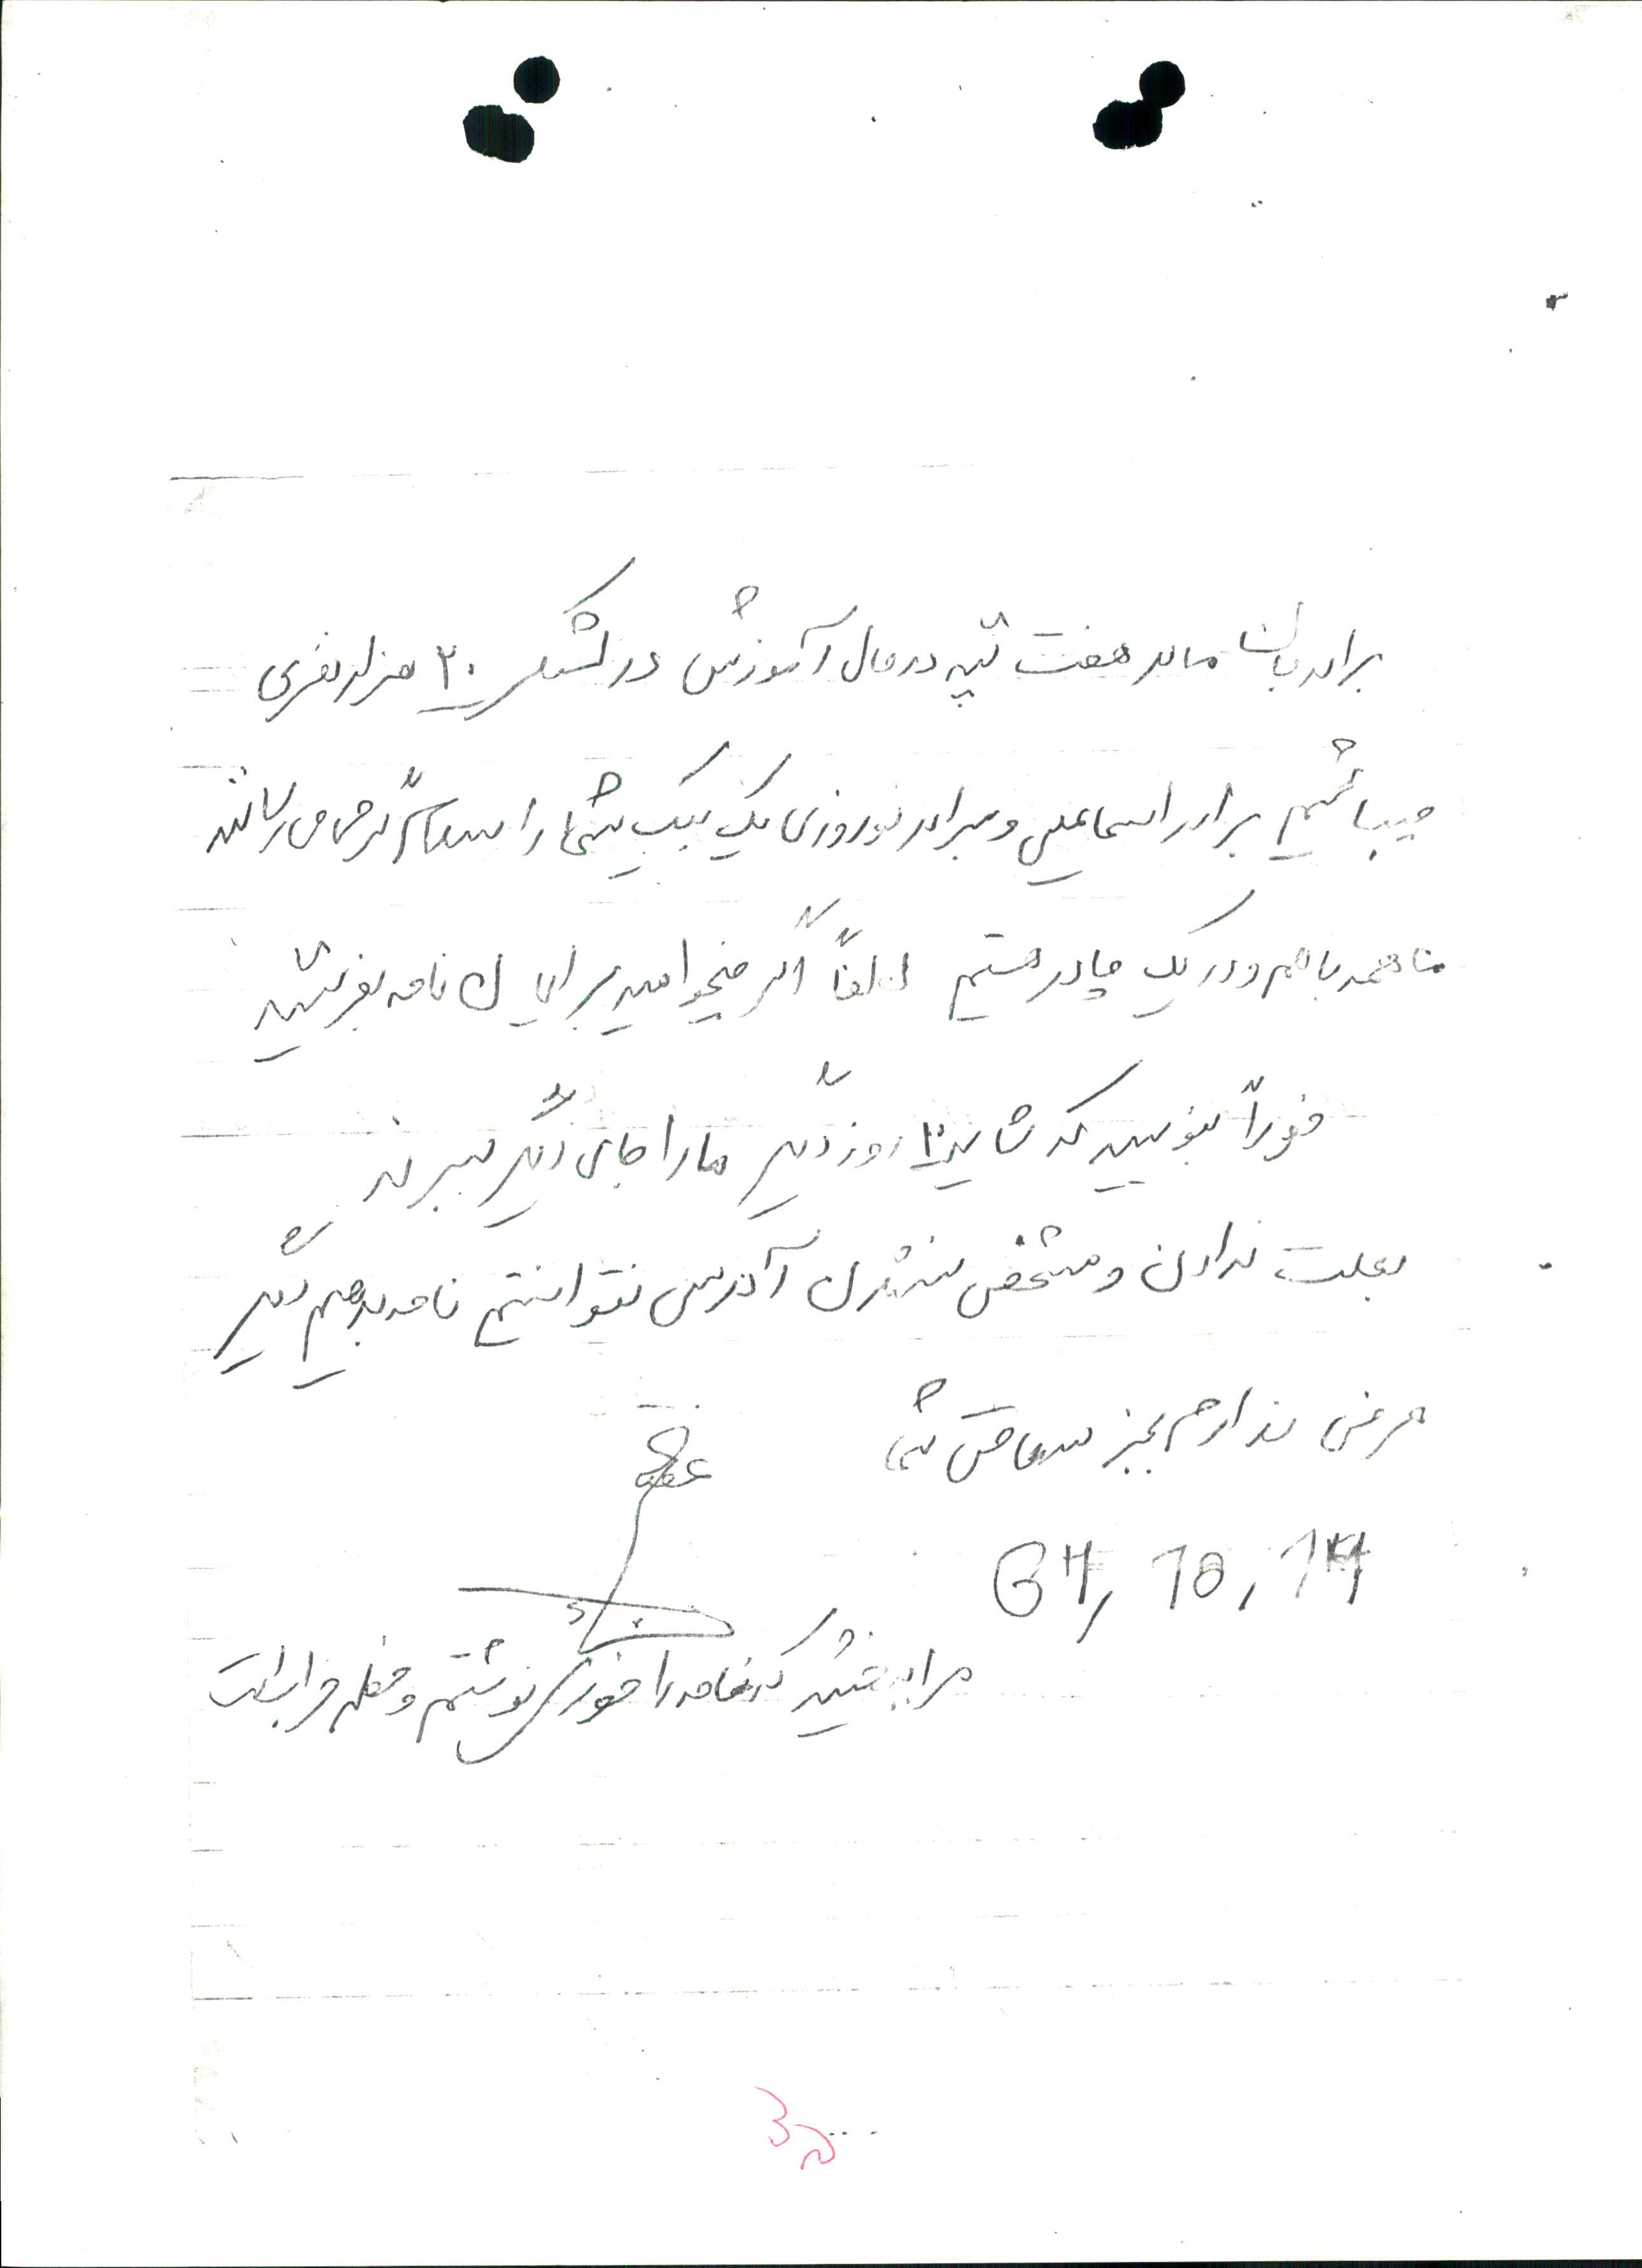 برادرجان ما در هفت تپه در حال آموزش در لشکر ۲۰ هزار نفری
میباشیم برادر اسماعیلی و برادر نوروزی یک یک شما را سلام گرم می رسانند
ما همه با هم و در یک چادر هستیم لطفاً اگر میخواهید برایمان نامه بفرستید
فوراً بنویسید که شاید ۲۰ روز دیگر ما را جای دیگر ببرند
بعلت ندادن و مشخص نشدن آدرس نتوانستیم نامه بدهیم دیگر
عرض ندارم بجز سلامتی شما
64, 10, 14
مرا ببخشید که نامه را خودم نوشتم و خطم خراب است